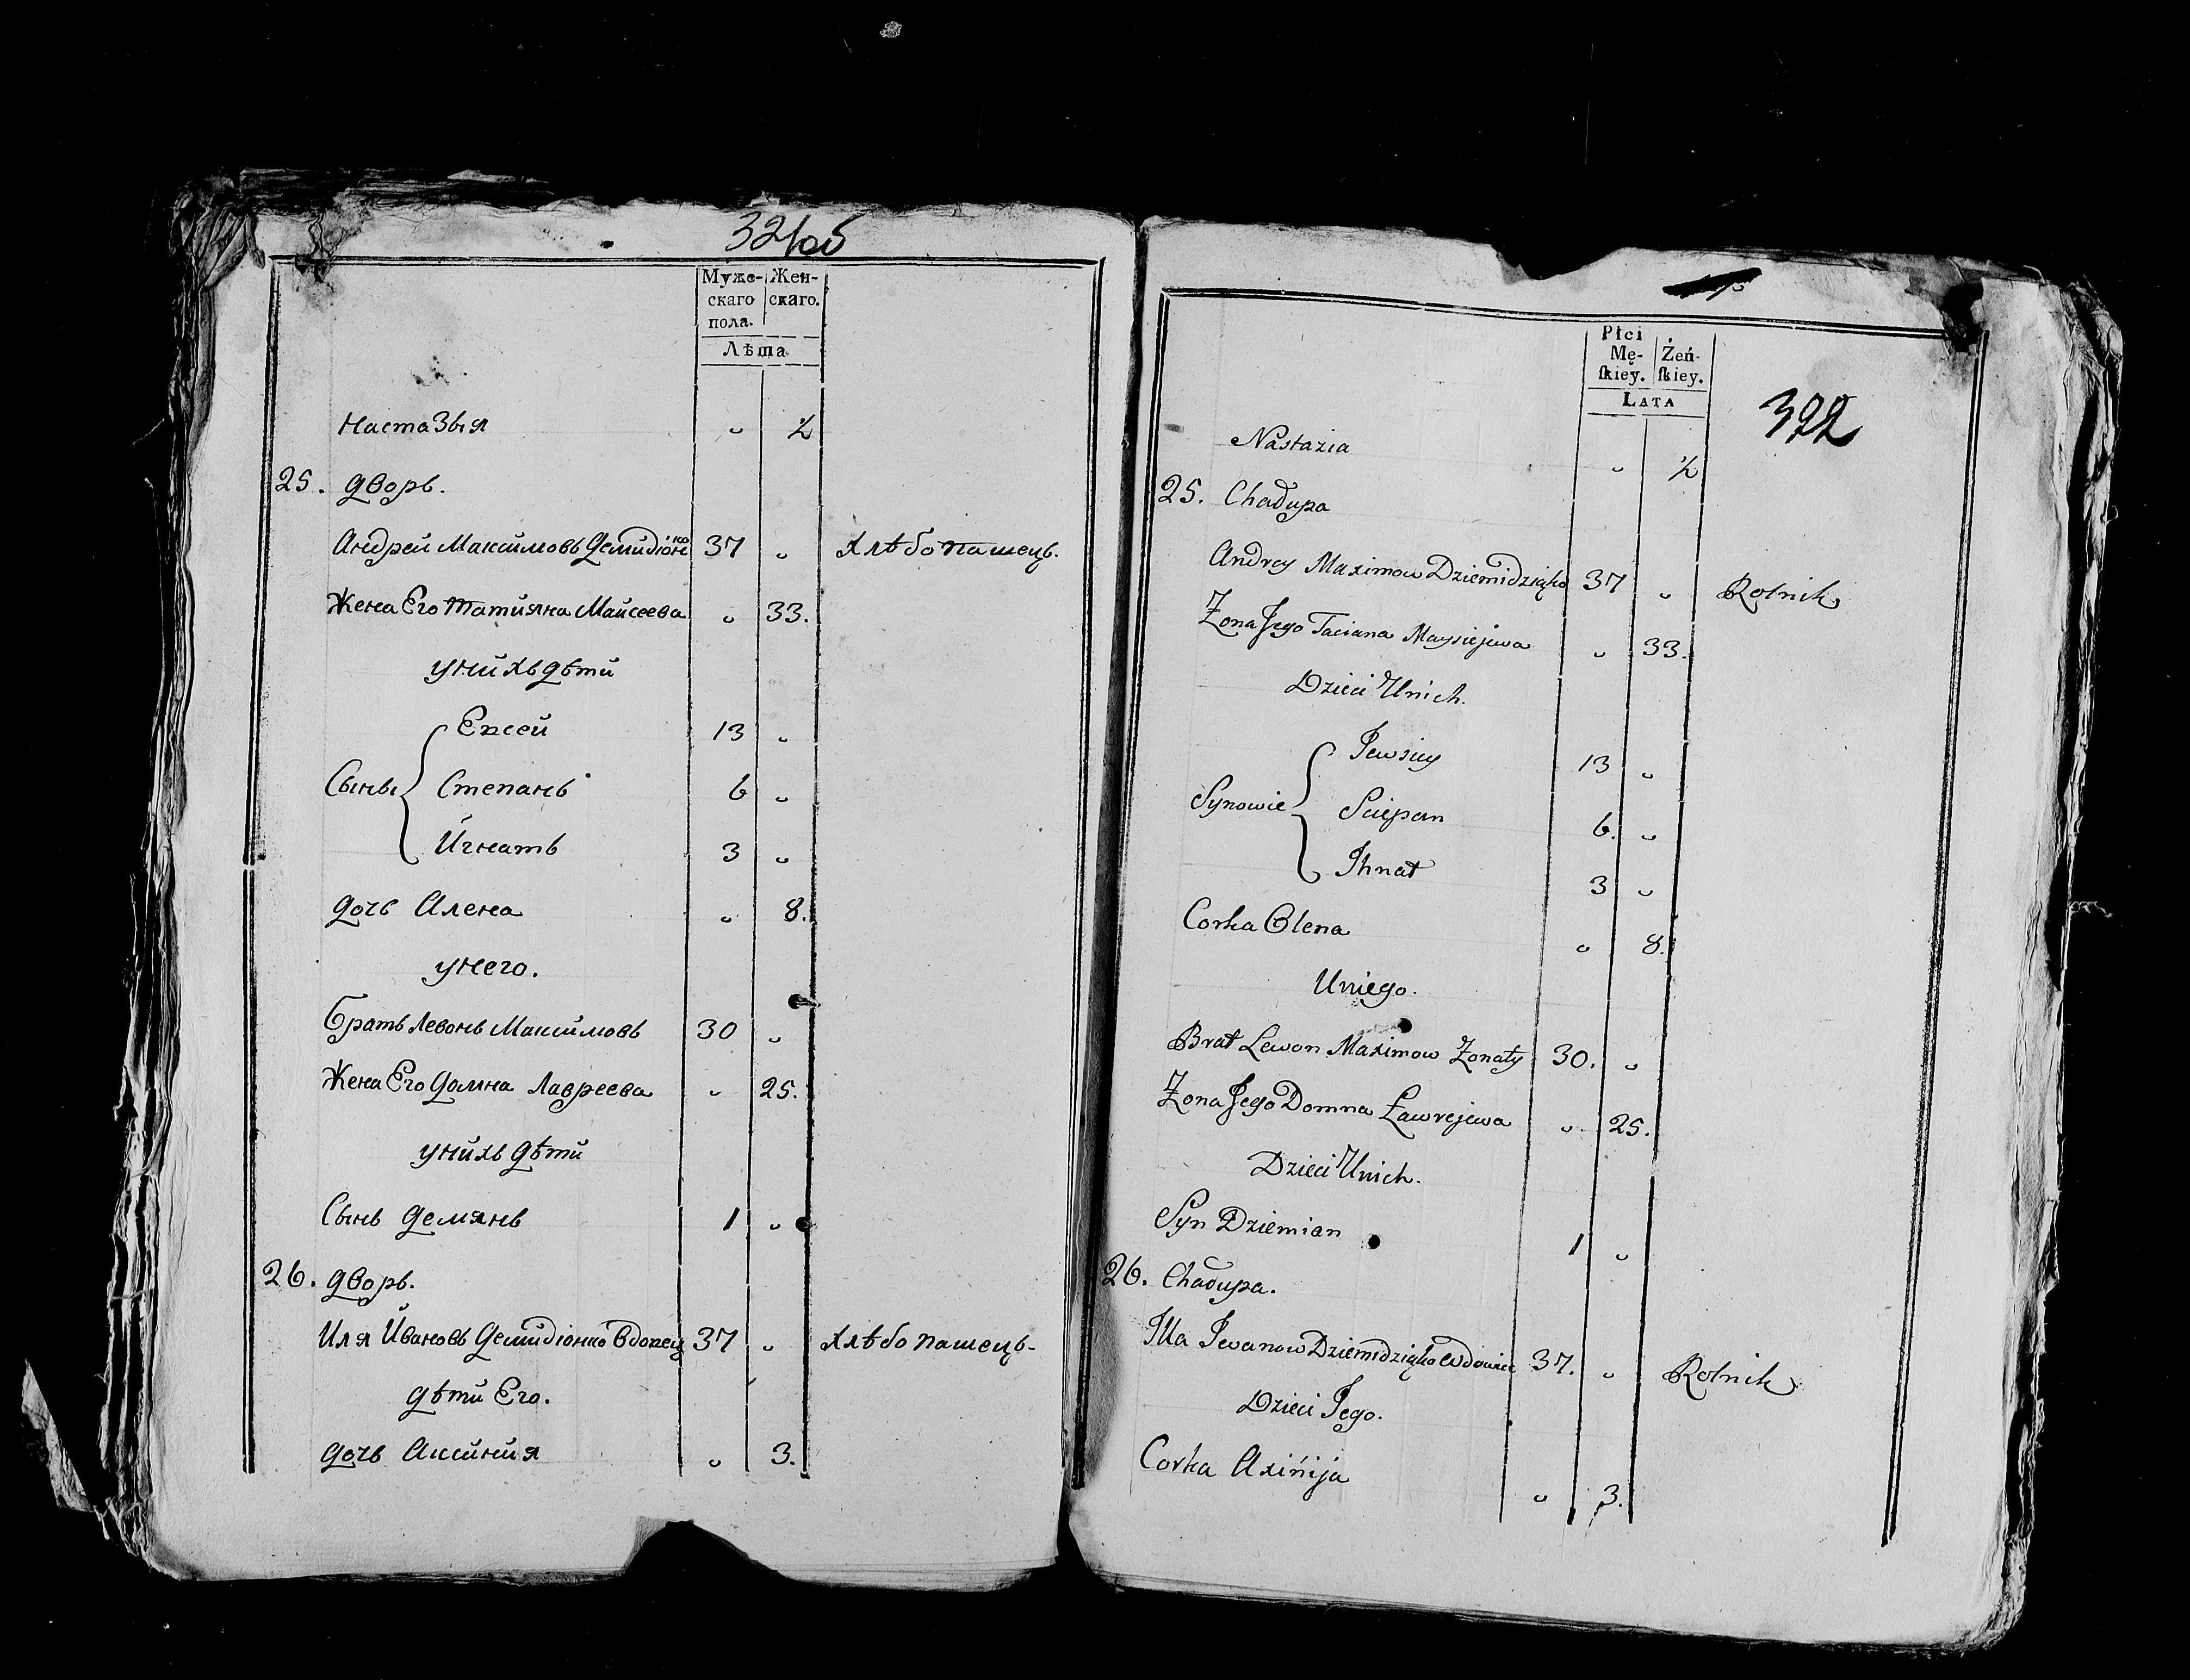 321об
Муже- Жен-
скаго скаго.
пола.
Лѣта
Настазыя " ½
25. дворъ.
Андрей Максимовъ Демидіонко 37 " Хлѣбопашецъ.
Жена Его Татияна Маисеева " 33.
унихъ дѣти
Сыны
Евсей 13 "
Степанъ 6 "
Игнатъ 3 "
дочь Алена " 8.
унего.
братъ Левонъ Максимовъ 30 "
Жена Его Домна Лавреева " 25.
унихъ дѣти
Сынъ Демянъ 1 "
26. дворъ.
Иля Ивановъ Демидіонко Вдовец 37 " Хлѣбопашецъ.
дѣти Его.
дочь Аксиния " 3.
322
Płci
Mę- Żeń-
ſkiey. ſkiey.
LATA
Nastazia " ½
25. Chałupa
Andrey Maximow Dziemidziąko 37 " Rolnik
Żona Jego Taciana Maysiejewa " 33.
Dzieci Unich.
Synowie
Jewsiey 13 "
Sciepan 6. "
Ihnat 3 "
Corka Olena " 8.
Uniego.
Brat Lewon Maximow Żonaty 30. "
Żona Jego Domna Ławrejewa " 25.
Dzieci Unich.
Syn Dziemian 1 "
26. Chałupa.
Illa Iwanow Dziemidziąko wdowiec 37. " Rolnik
Dzieci Jego.
Corka Axińija " 3.